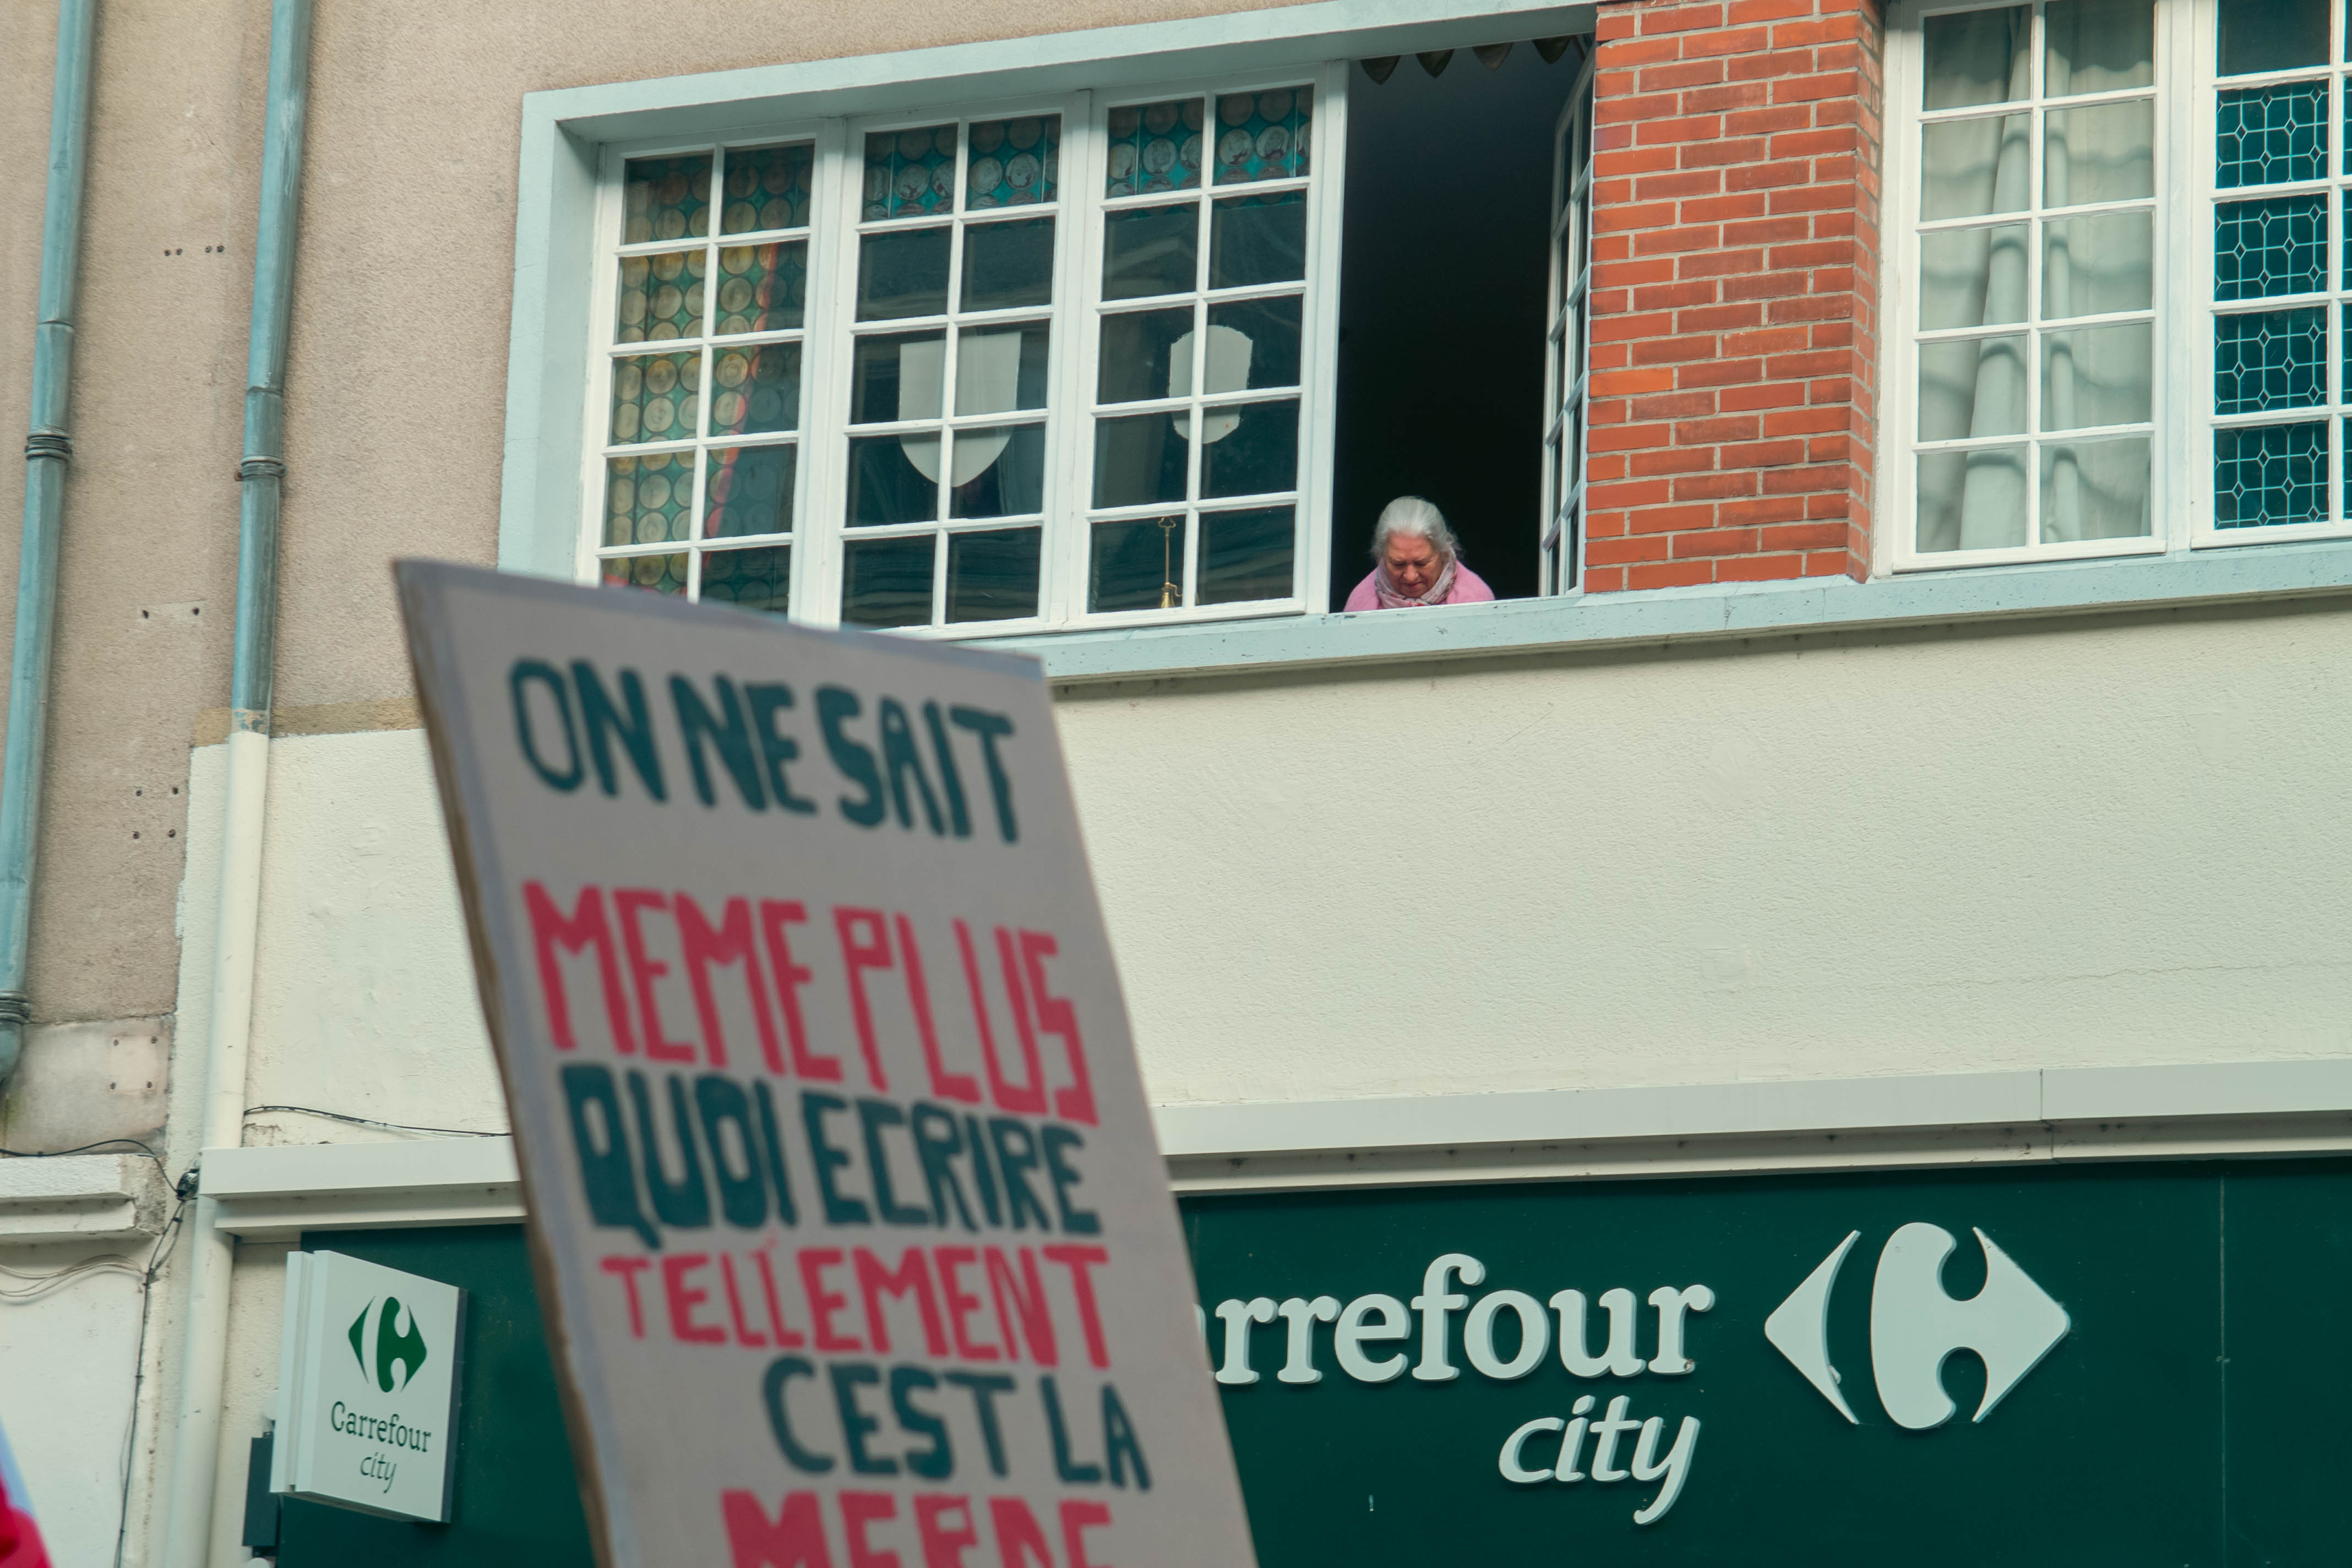 ON NE SAIT
MEME PLUS
QUOI ECRIRE
TELLEMENT
C'EST LA
MERDE
arrefour
city
Carrefour
city